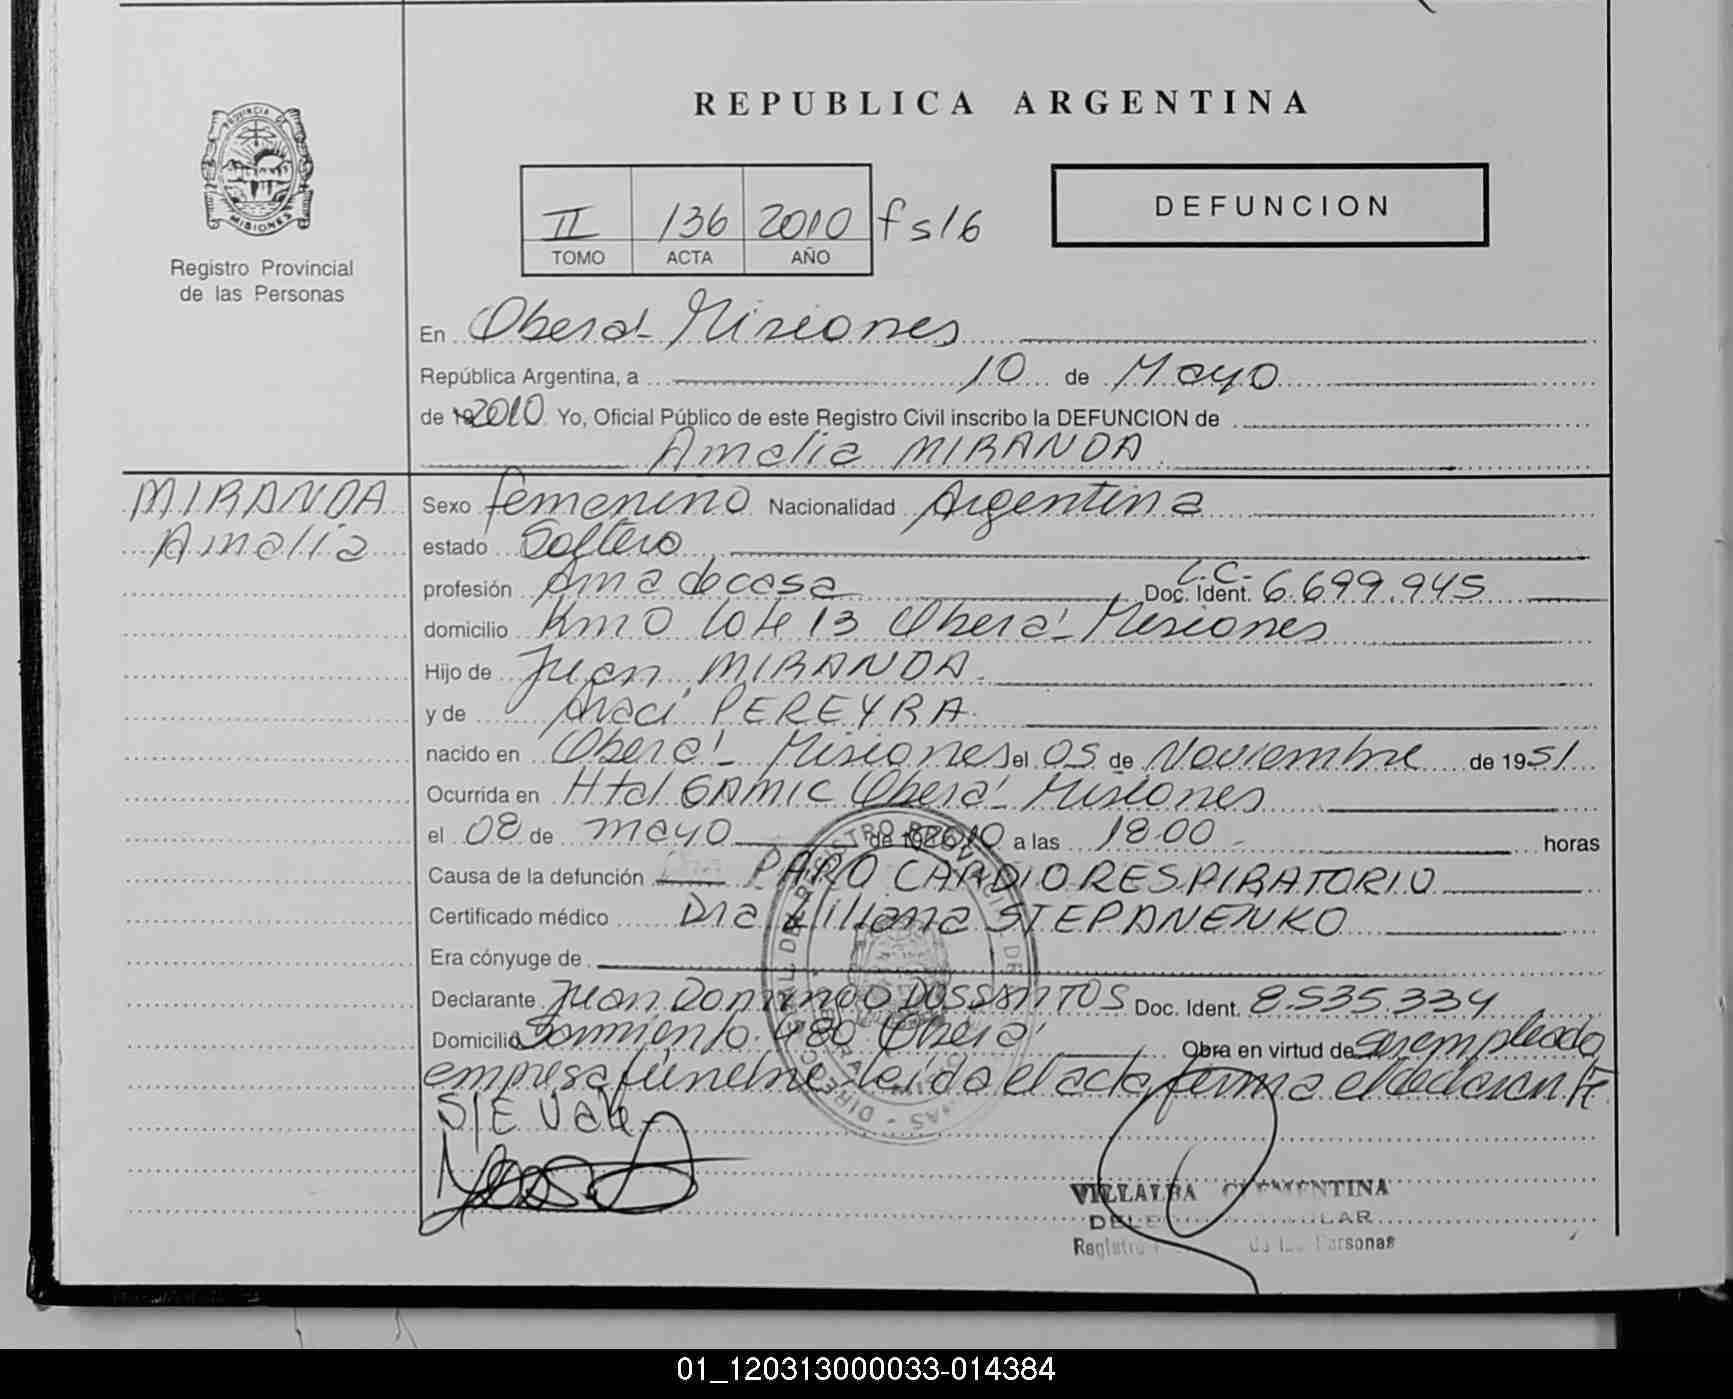 REPUBLICA ARGENTINA
PROVINCIA DE MISIONES
Registro Provincial
de las Personas
II 136 2010 fs 16
TOMO ACTA AÑO
DEFUNCION
En Oberá - Misiones
República Argentina, a 10 de Mayo
de 19 2010 Yo, Oficial Público de este Registro Civil inscribo la DEFUNCION de
Amalia MIRANDA
MIRANDA
Amalia
Sexo femenino Nacionalidad Argentina
estado Soltero
profesión Ama de casa Doc. Ident. L.C. 6.699.945
domicilio Km 0 lote 13 Oberá - Misiones
Hijo de Juan MIRANDA
y de Araci PEREYRA
nacido en Oberá - Misiones el 05 de Noviembre de 1951
Ocurrida en Htal SAMIC Oberá - Misiones
el 08 de mayo de 2010 a las 18.00 horas
Causa de la defunción PARO CARDIORESPIRATORIO
Certificado médico Dra Liliana STEPANENKO
Era cónyuge de
Declarante Juan Domingo DOSSANTOS Doc. Ident. 8.535.334
Domicilio Sarmiento 480 Oberá Obra en virtud de ser empleado
empresa fúnebre leída el acta firma el declarante
S/E Vale
VILLALBA CLEMENTINA
Registro de las Personas
01_120313000033-014384